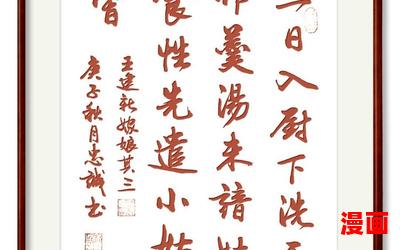 三日入厨下洗手
作羹汤未谙姑
食性先遣小姑
尝
王建新嫁娘其三
庚子秋月忠诚书
漫画